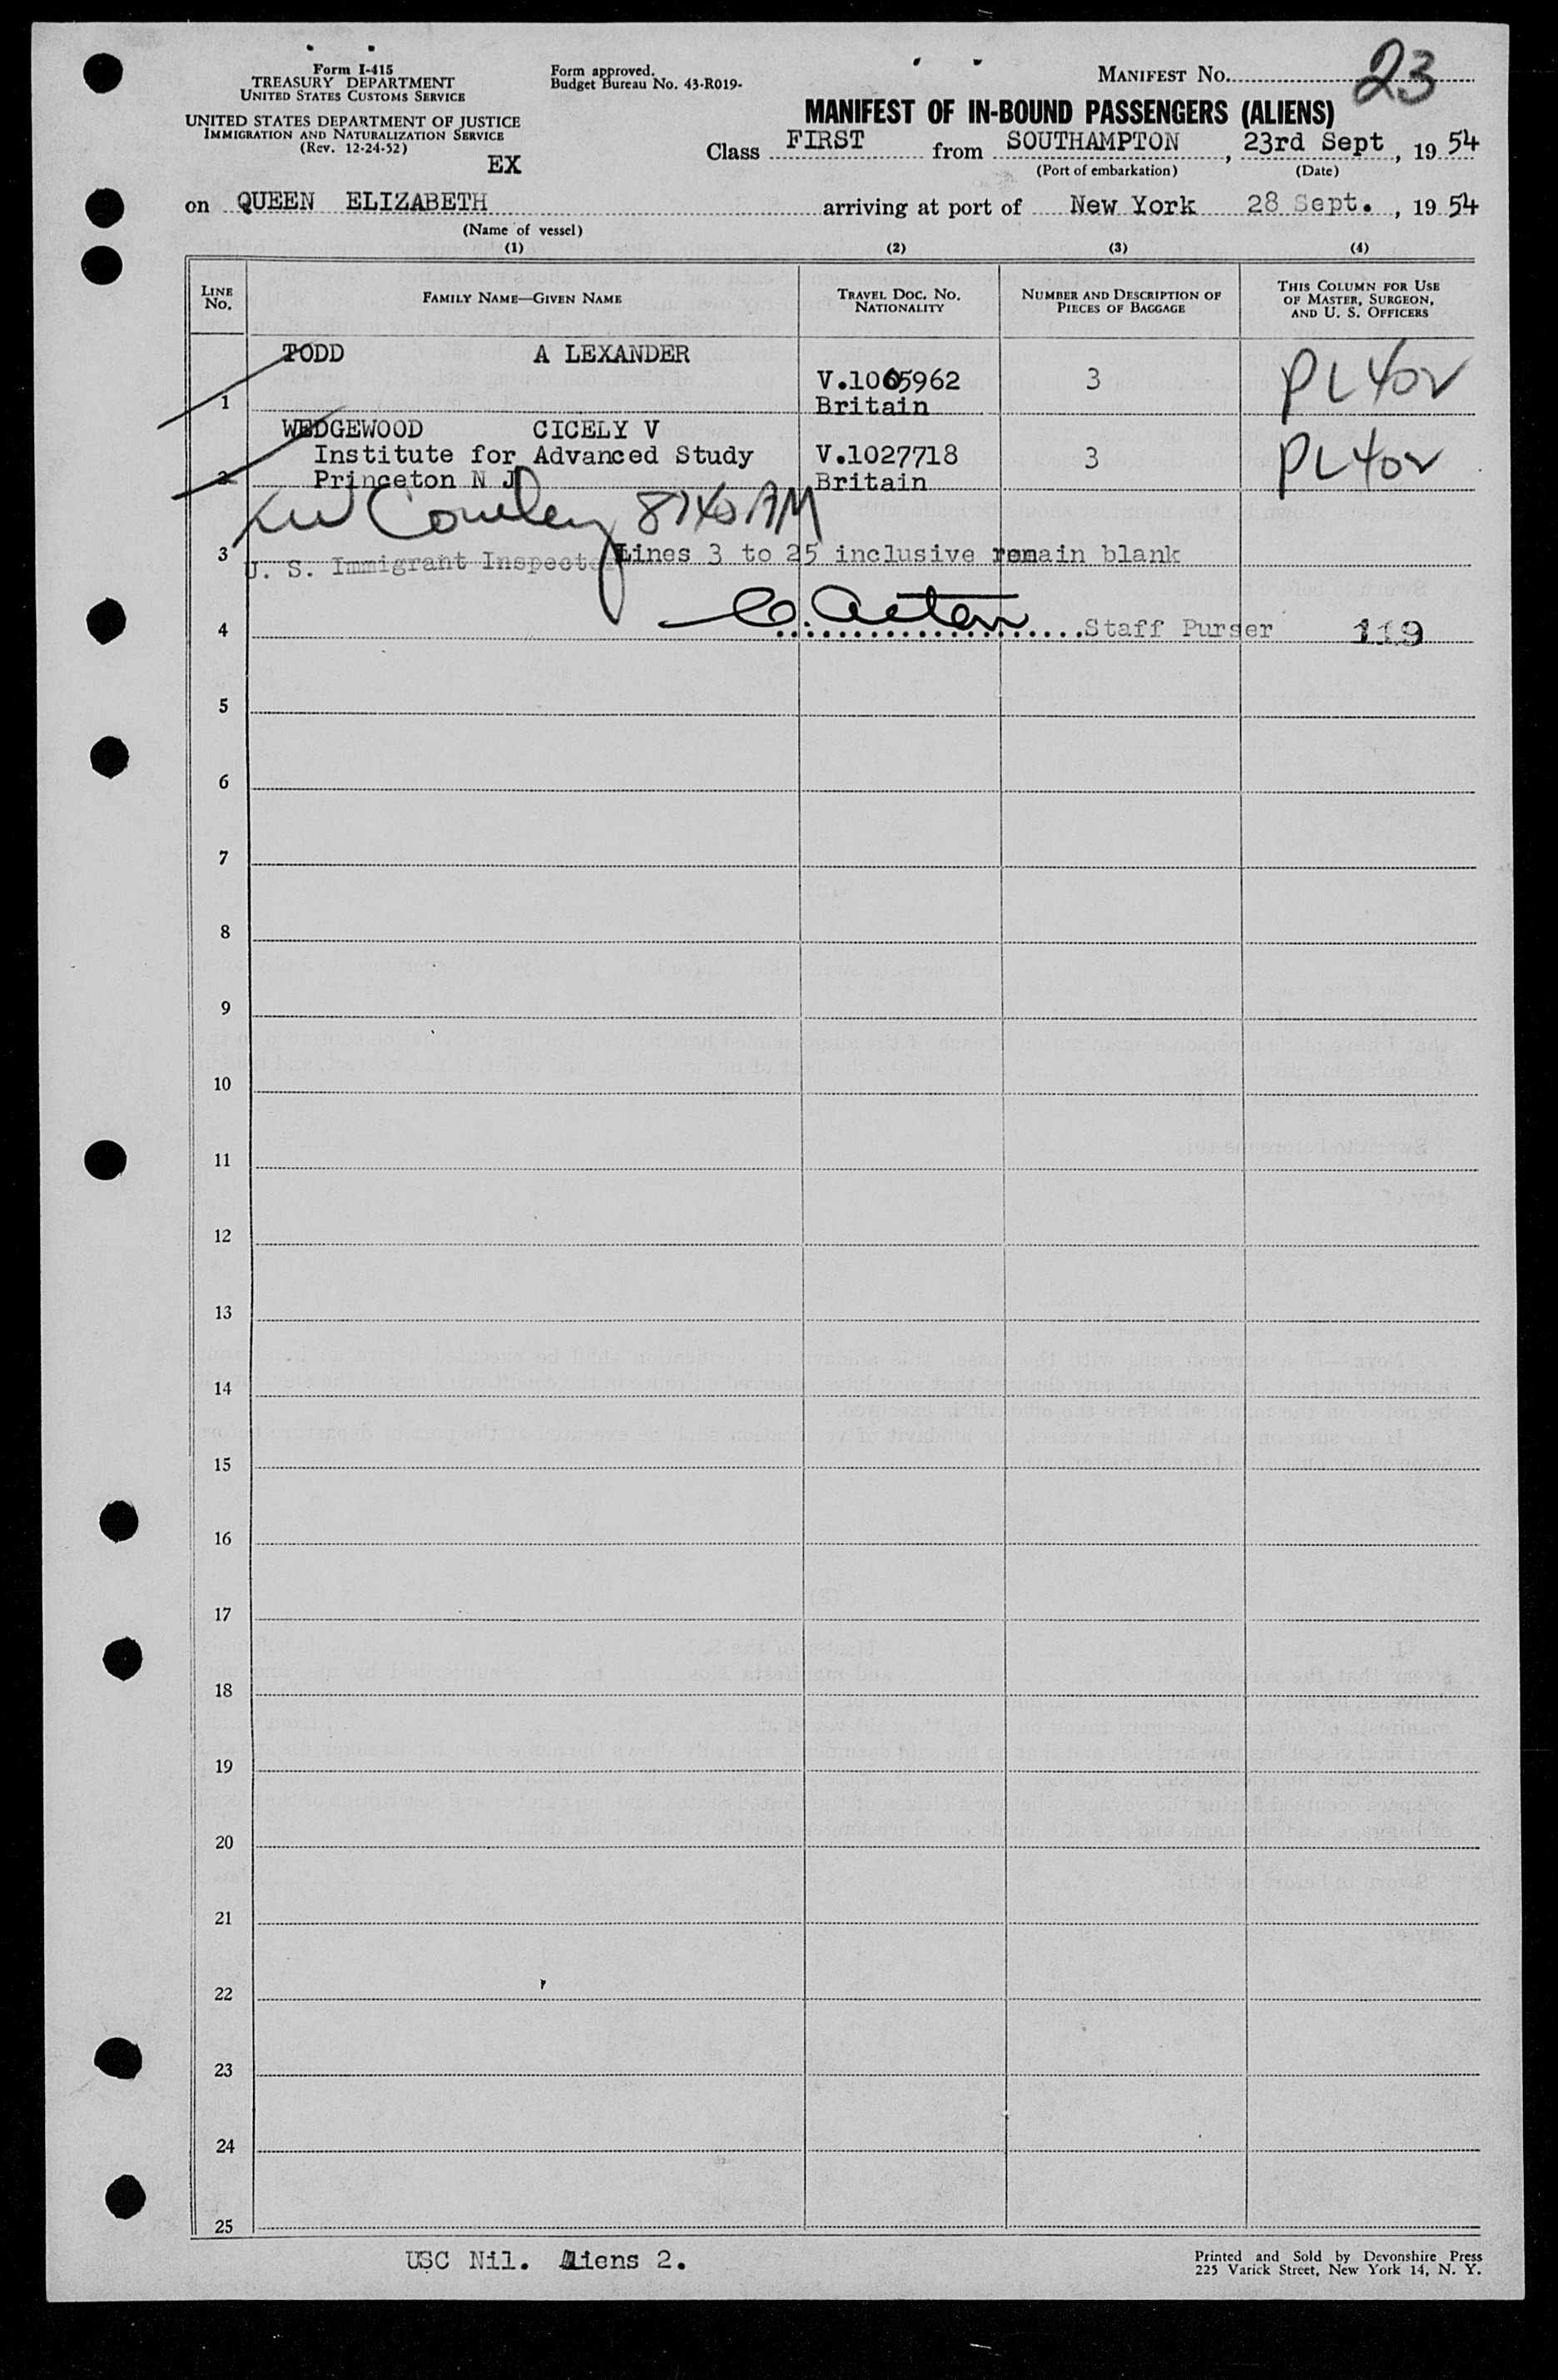 Form I-415
TREASURY DEPARTMENT
UNITED STATES CUSTOMS SERVICE
UNITED STATES DEPARTMENT OF JUSTICE
IMMIGRATION AND NATURALIZATION SERVICE
(Rev. 12-24-52)
EX
Form approved.
Budget Bureau No. 43-R019-
MANIFEST No. 23
MANIFEST OF IN-BOUND PASSENGERS (ALIENS)
Class FIRST from SOUTHAMPTON, 23rd Sept, 19 54
(Port of embarkation) (Date)
on QUEEN ELIZABETH arriving at port of New York 28 Sept., 19 54
(Name of vessel)
(1) (2) (3) (4)
LINE No. FAMILY NAME—GIVEN NAME TRAVEL DOC. No. NATIONALITY NUMBER AND DESCRIPTION OF PIECES OF BAGGAGE THIS COLUMN FOR USE OF MASTER, SURGEON, AND U. S. OFFICERS
TODD A LEXANDER
V.1065962 3
1 Britain
WEDGEWOOD CICELY V
Institute for Advanced Study V.1027718 3
2 Princeton N J Britain
8740 AM
3 U. S. Immigrant Inspector Lines 3 to 25 inclusive remain blank
4 Staff Purser 119
5
6
7
8
9
10
11
12
13
14
15
16
17
18
19
20
21
22
23
24
25
USC Nil. Aliens 2.
Printed and Sold by Devonshire Press
225 Varick Street, New York 14, N. Y.